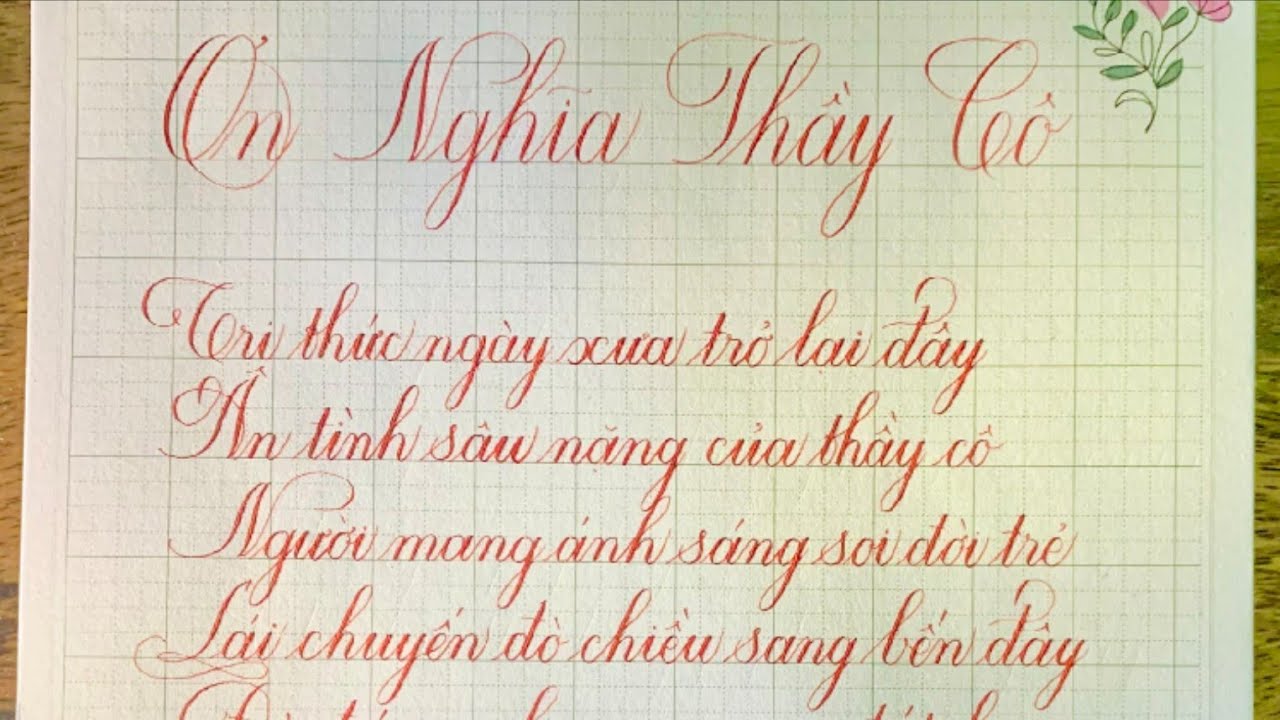 Ơn Nghĩa Thầy Cô
Tri thức ngày xưa trở lại đây
Ân tình sâu nặng của thầy cô
Người mang ánh sáng soi đời trẻ
Lái chuyến đò chiều sang bến đây